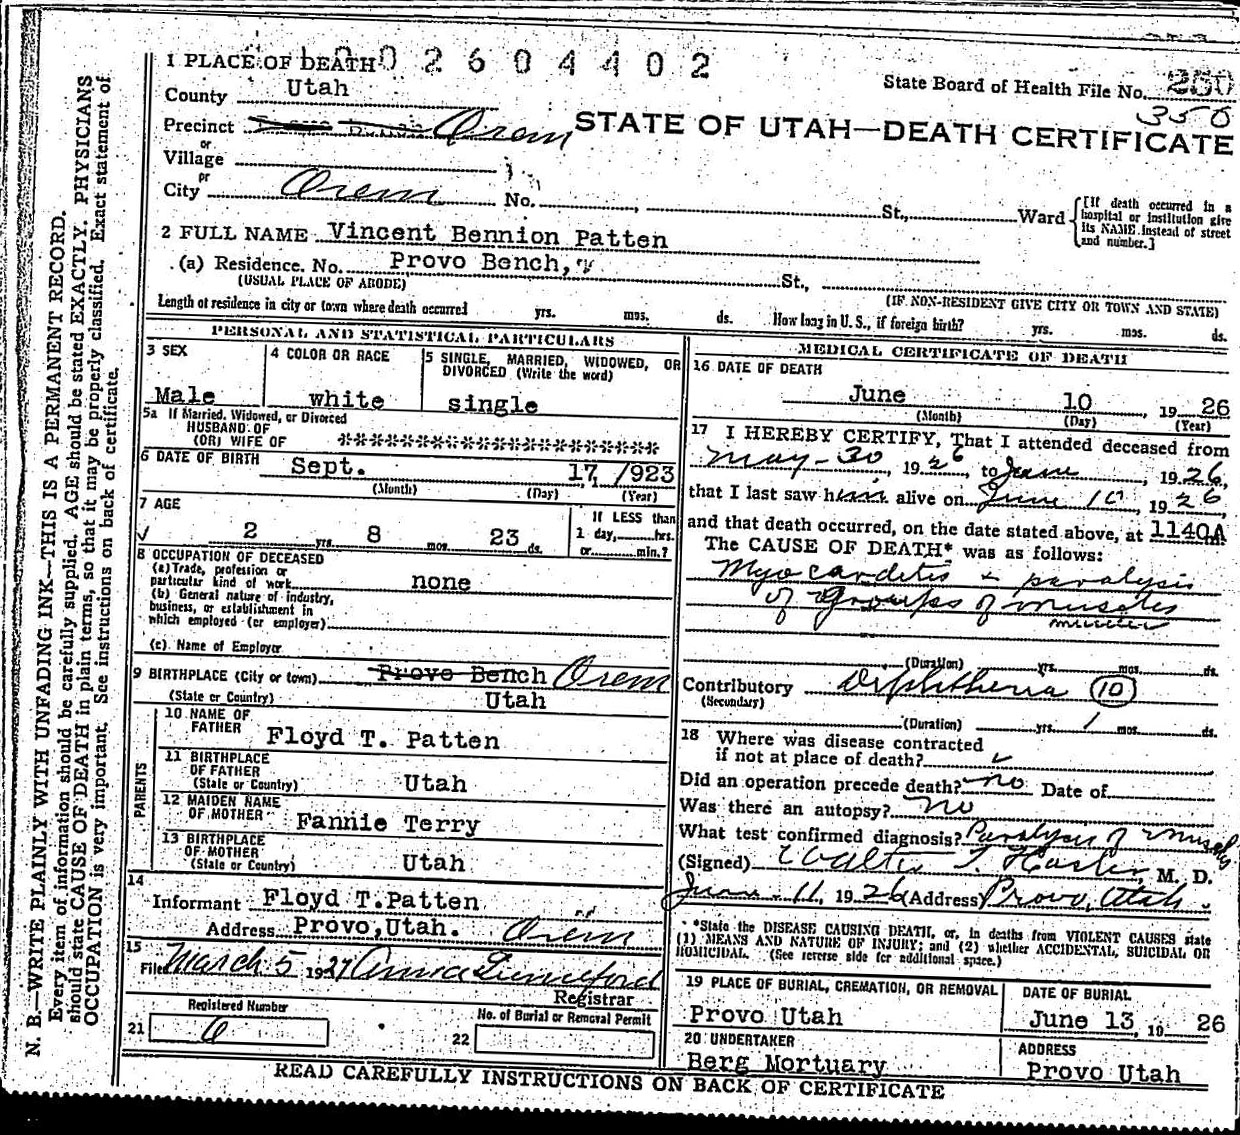 1 PLACE OF DEATH
1 0 0 2 6 0 4 4 0 2
State Board of Health File No. 250
350
County Utah
Precinct Orem
STATE OF UTAH—DEATH CERTIFICATE
or
Village
or
City Orem No. St., Ward
[If death occurred in a hospital or institution give its NAME instead of street and number.]
2 FULL NAME Vincent Bennion Patten
(a) Residence. No. Provo Bench, St.,
(USUAL PLACE OF ABODE) (IF NON-RESIDENT GIVE CITY OR TOWN AND STATE)
Length of residence in city or town where death occurred yrs. mos. ds. How long in U. S., if foreign birth? yrs. mos. ds.
PERSONAL AND STATISTICAL PARTICULARS
3 SEX
Male
4 COLOR OR RACE
white
5 SINGLE, MARRIED, WIDOWED, OR DIVORCED (Write the word)
single
5a If Married, Widowed, or Divorced
HUSBAND OF
(OR) WIFE OF ************************
6 DATE OF BIRTH Sept. 17, 1923
(Month) (Day) (Year)
7 AGE
2 yrs. 8 mos. 23 ds.
If LESS than
1 day, hrs.
or min.?
8 OCCUPATION OF DECEASED
(a) Trade, profession or
particular kind of work none
(b) General nature of industry,
business, or establishment in
which employed (or employer)
(c) Name of Employer
9 BIRTHPLACE (City or town) Provo Bench Orem
(State or Country) Utah
PARENTS
10 NAME OF
FATHER Floyd T. Patten
11 BIRTHPLACE
OF FATHER
(State or Country) Utah
12 MAIDEN NAME
OF MOTHER Fannie Terry
13 BIRTHPLACE
OF MOTHER
(State or Country) Utah
14
Informant Floyd T. Patten
Address Provo, Utah. Orem
15
Filed March 5 1927
Registrar
Registered Number
21 6
No. of Burial or Removal Permit
22
MEDICAL CERTIFICATE OF DEATH
16 DATE OF DEATH
June 10, 1926
(Month) (Day) (Year)
17 I HEREBY CERTIFY, That I attended deceased from
May-30, 1926, to June, 1926,
that I last saw him alive on June 10, 1926
and that death occurred, on the date stated above, at 1140A m.
The CAUSE OF DEATH* was as follows:
Myocarditis & paralysis
of groups of muscles
muscles
(Duration) yrs. mos. ds.
Contributory Diphtheria (10)
(Secondary)
(Duration) yrs. 1 mos. ds.
18 Where was disease contracted
if not at place of death?
Did an operation precede death? no Date of
Was there an autopsy? no
What test confirmed diagnosis? Paralysis of muscles
(Signed) Walter T. Hasler, M. D.
June 11, 1926 (Address) Provo, Utah.
*State the DISEASE CAUSING DEATH, or, in deaths from VIOLENT CAUSES state
(1) MEANS AND NATURE OF INJURY; and (2) whether ACCIDENTAL, SUICIDAL OR
HOMICIDAL. (See reverse side for additional space.)
19 PLACE OF BURIAL, CREMATION, OR REMOVAL
Provo Utah
DATE OF BURIAL
June 13, 1926
20 UNDERTAKER
Berg Mortuary
ADDRESS
Provo Utah
READ CAREFULLY INSTRUCTIONS ON BACK OF CERTIFICATE
N. B.—WRITE PLAINLY WITH UNFADING INK—THIS IS A PERMANENT RECORD.
Every item of information should be carefully supplied. AGE should be stated EXACTLY. PHYSICIANS
should state CAUSE OF DEATH in plain terms, so that it may be properly classified. Exact statement of
OCCUPATION is very important. See instructions on back of certificate.